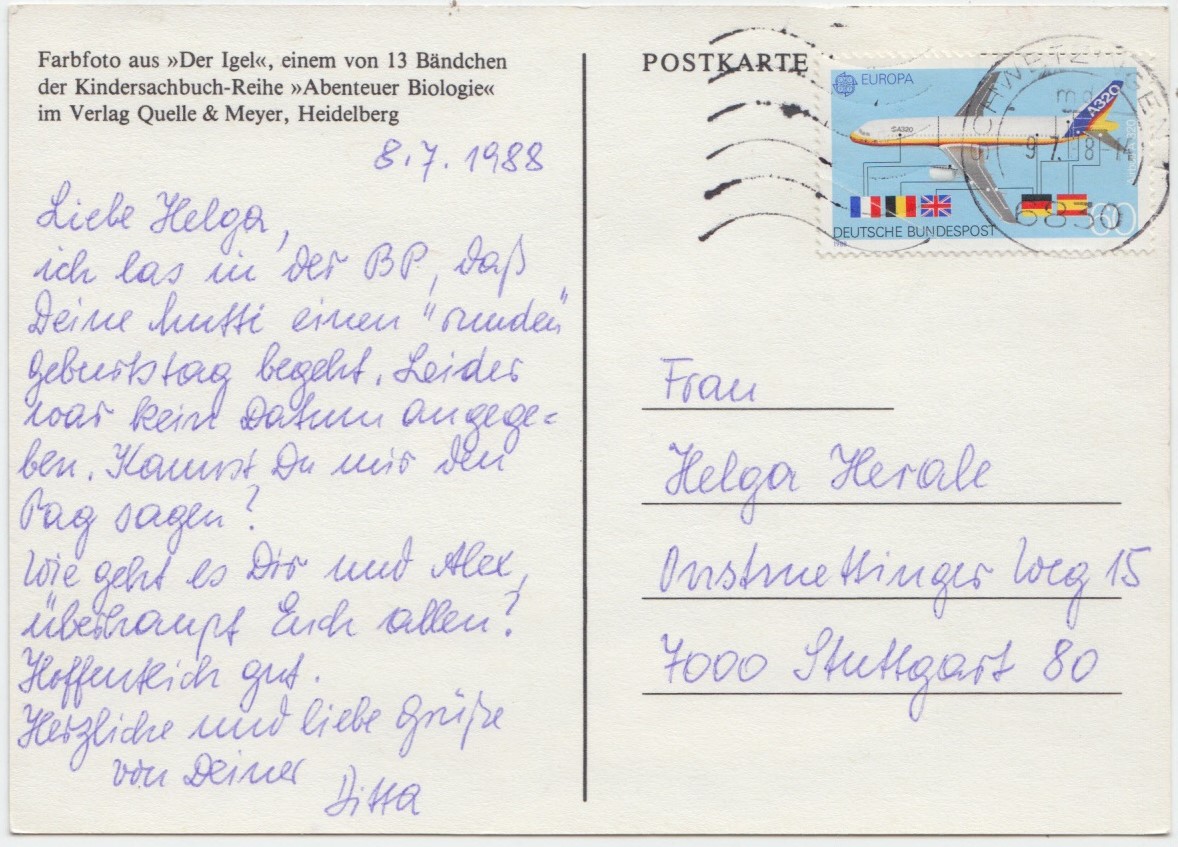 Farbfoto aus »Der Igel«, einem von 13 Bändchen
der Kindersachbuch-Reihe »Abenteuer Biologie«
im Verlag Quelle & Meyer, Heidelberg
8.7.1988
Liebe Helga,
ich las in der BP, daß
Deine Mutti einen "runden"
Geburtstag begeht. Leider
war kein Datum angege=
ben. Kannst Du mir den
Tag sagen?
Wie geht es Dir und Alex,
überhaupt Euch allen?
Hoffentlich gut.
Herzliche und liebe Grüße
von Deiner
Ditta
POSTKARTE
EUROPA
A320
GA320
DEUTSCHE BUNDESPOST
60
1988
SCHWETZINGEN
9.7.8
6830
Frau
Helga
Onstmettinger Weg 15
7000 Stuttgart 80